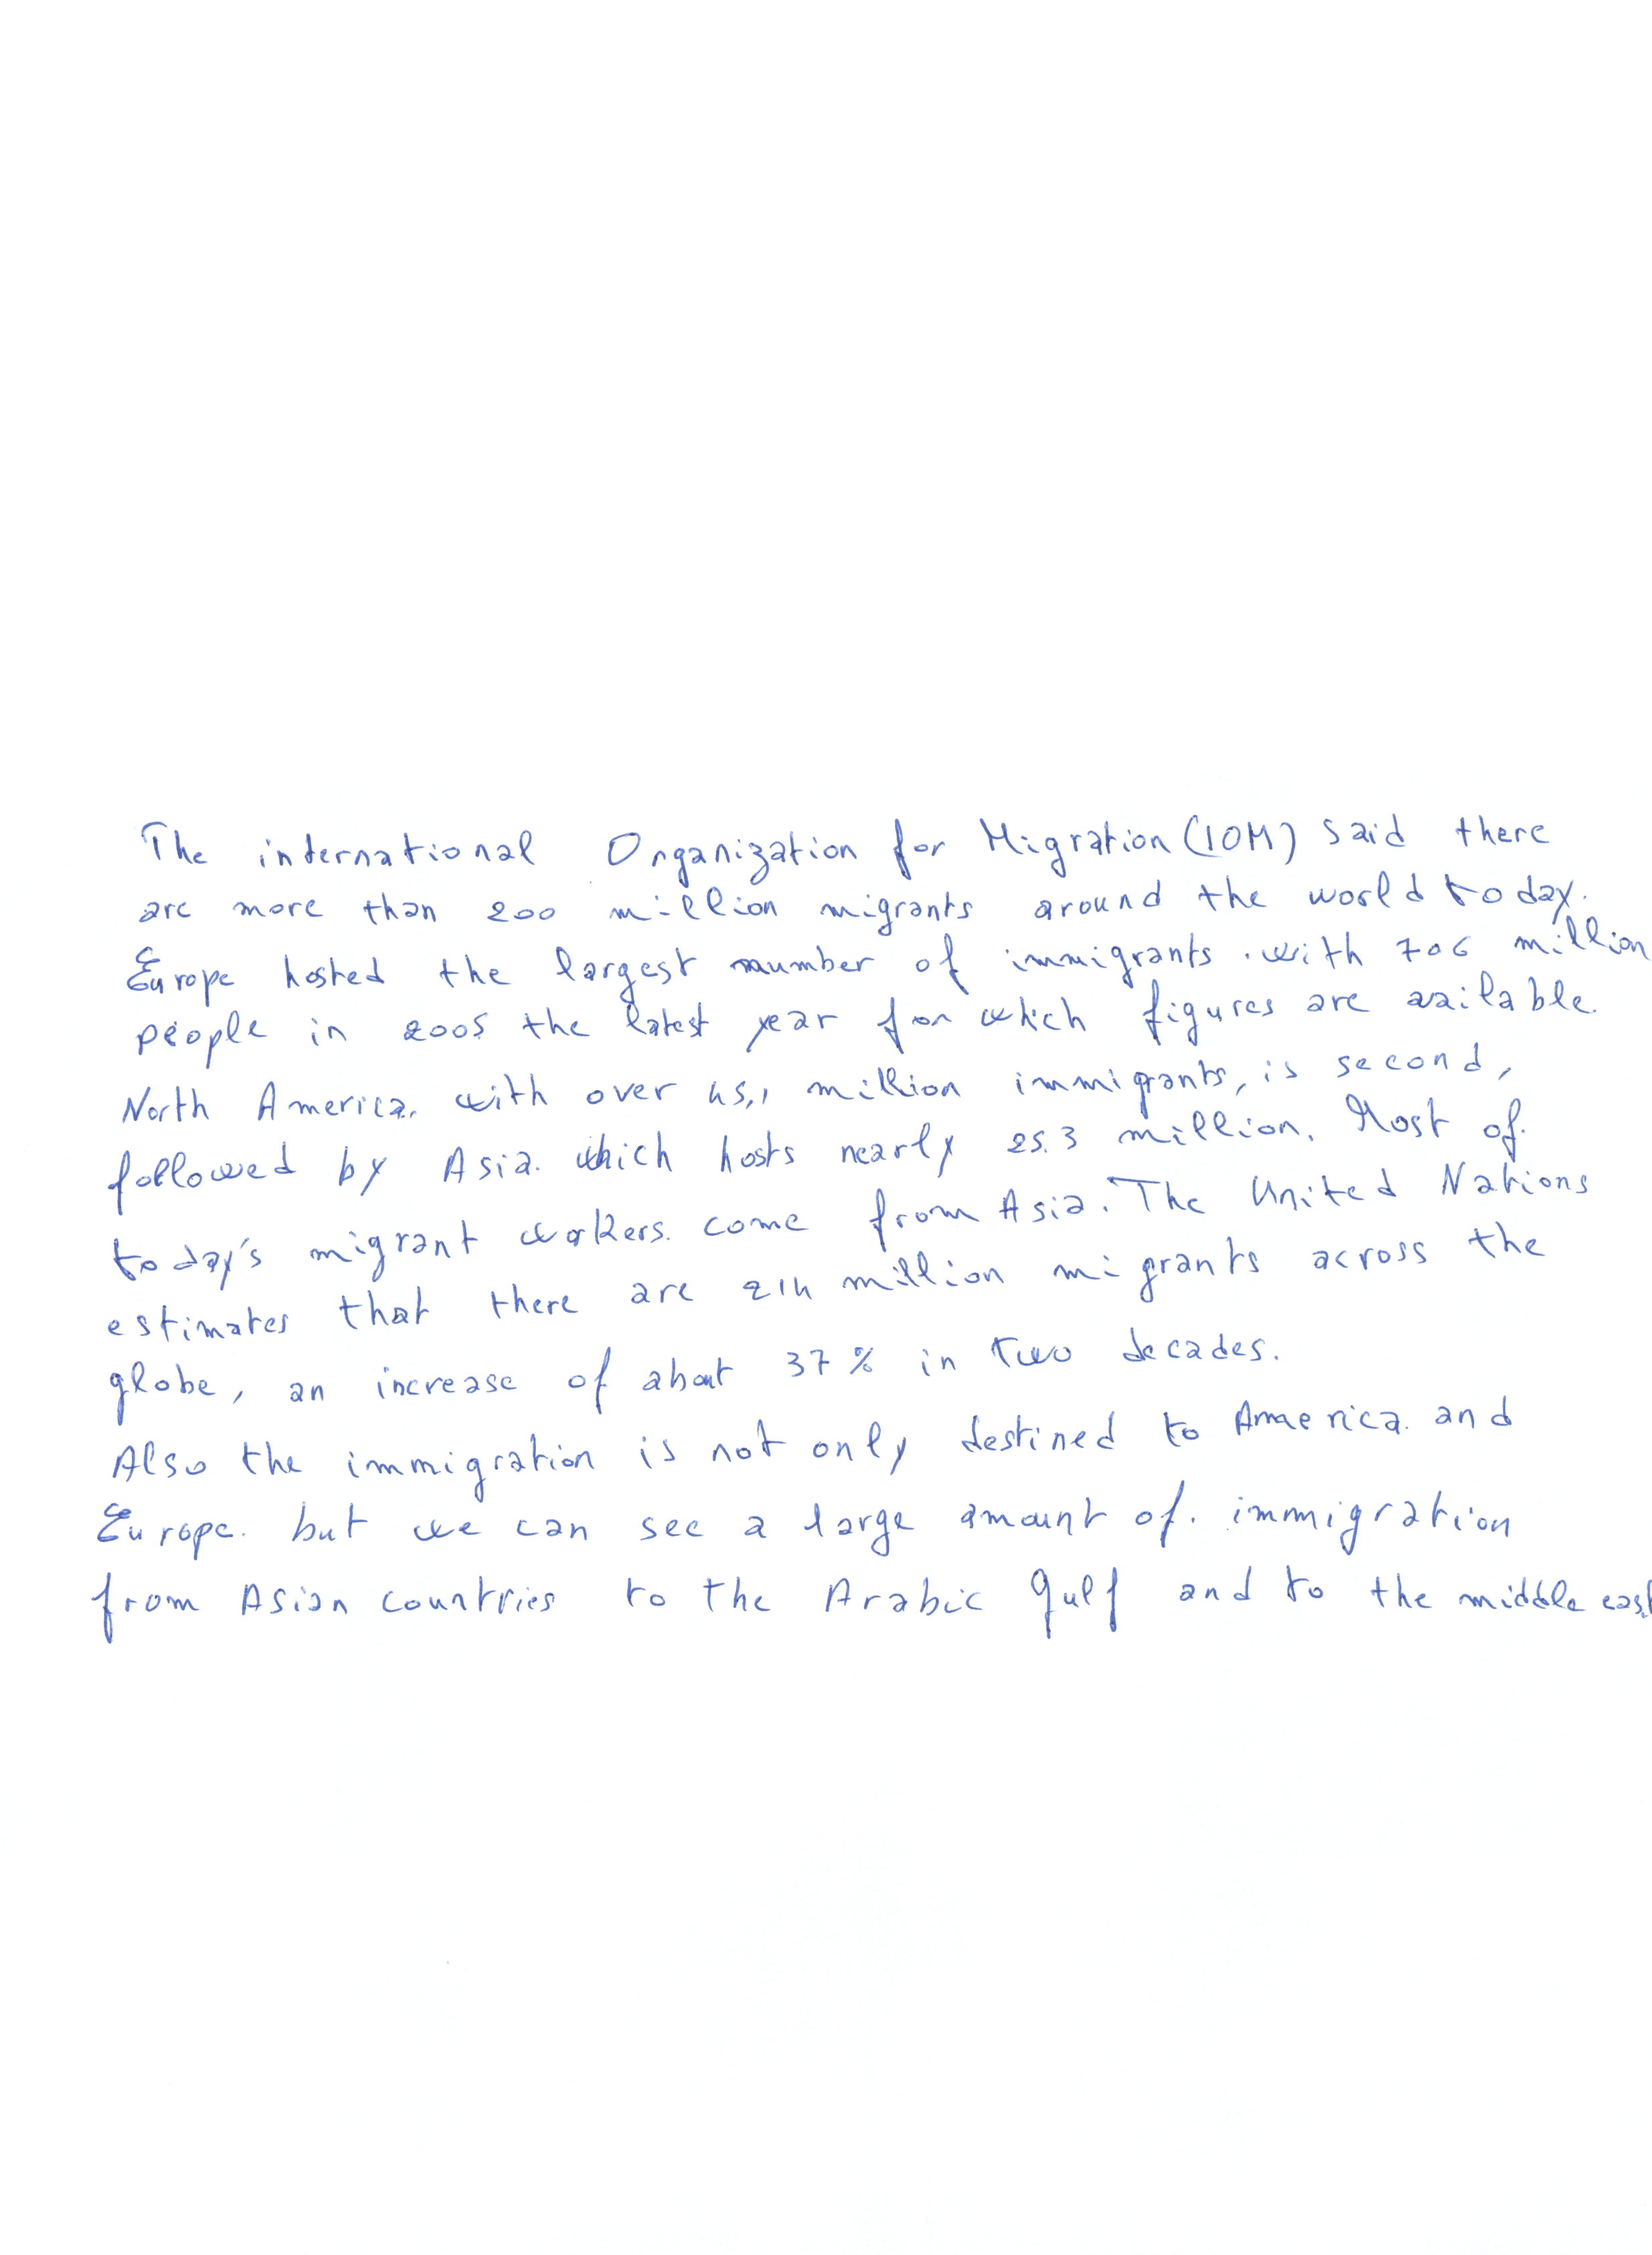 The international Organization for Migration (IOM) said there
are more than 200 million migrants around the world today.
Europe hosted the largest number of immigrants. with 706 million
people in 2005 the latest year for which figures are available.
North America. with over 45,1 million immigrants, is second,
followed by Asia. which hosts nearly 25.3 million. Most of
today's migrant workers. come from Asia. The United Nations
estimates that there are 214 million migrants across the
globe, an increase of about 37 % in two decades.
Also the immigration is not only destined to America. and
Europe. but we can see a large amount of. immigration
from Asian countries to the Arabic gulf and to the middle east